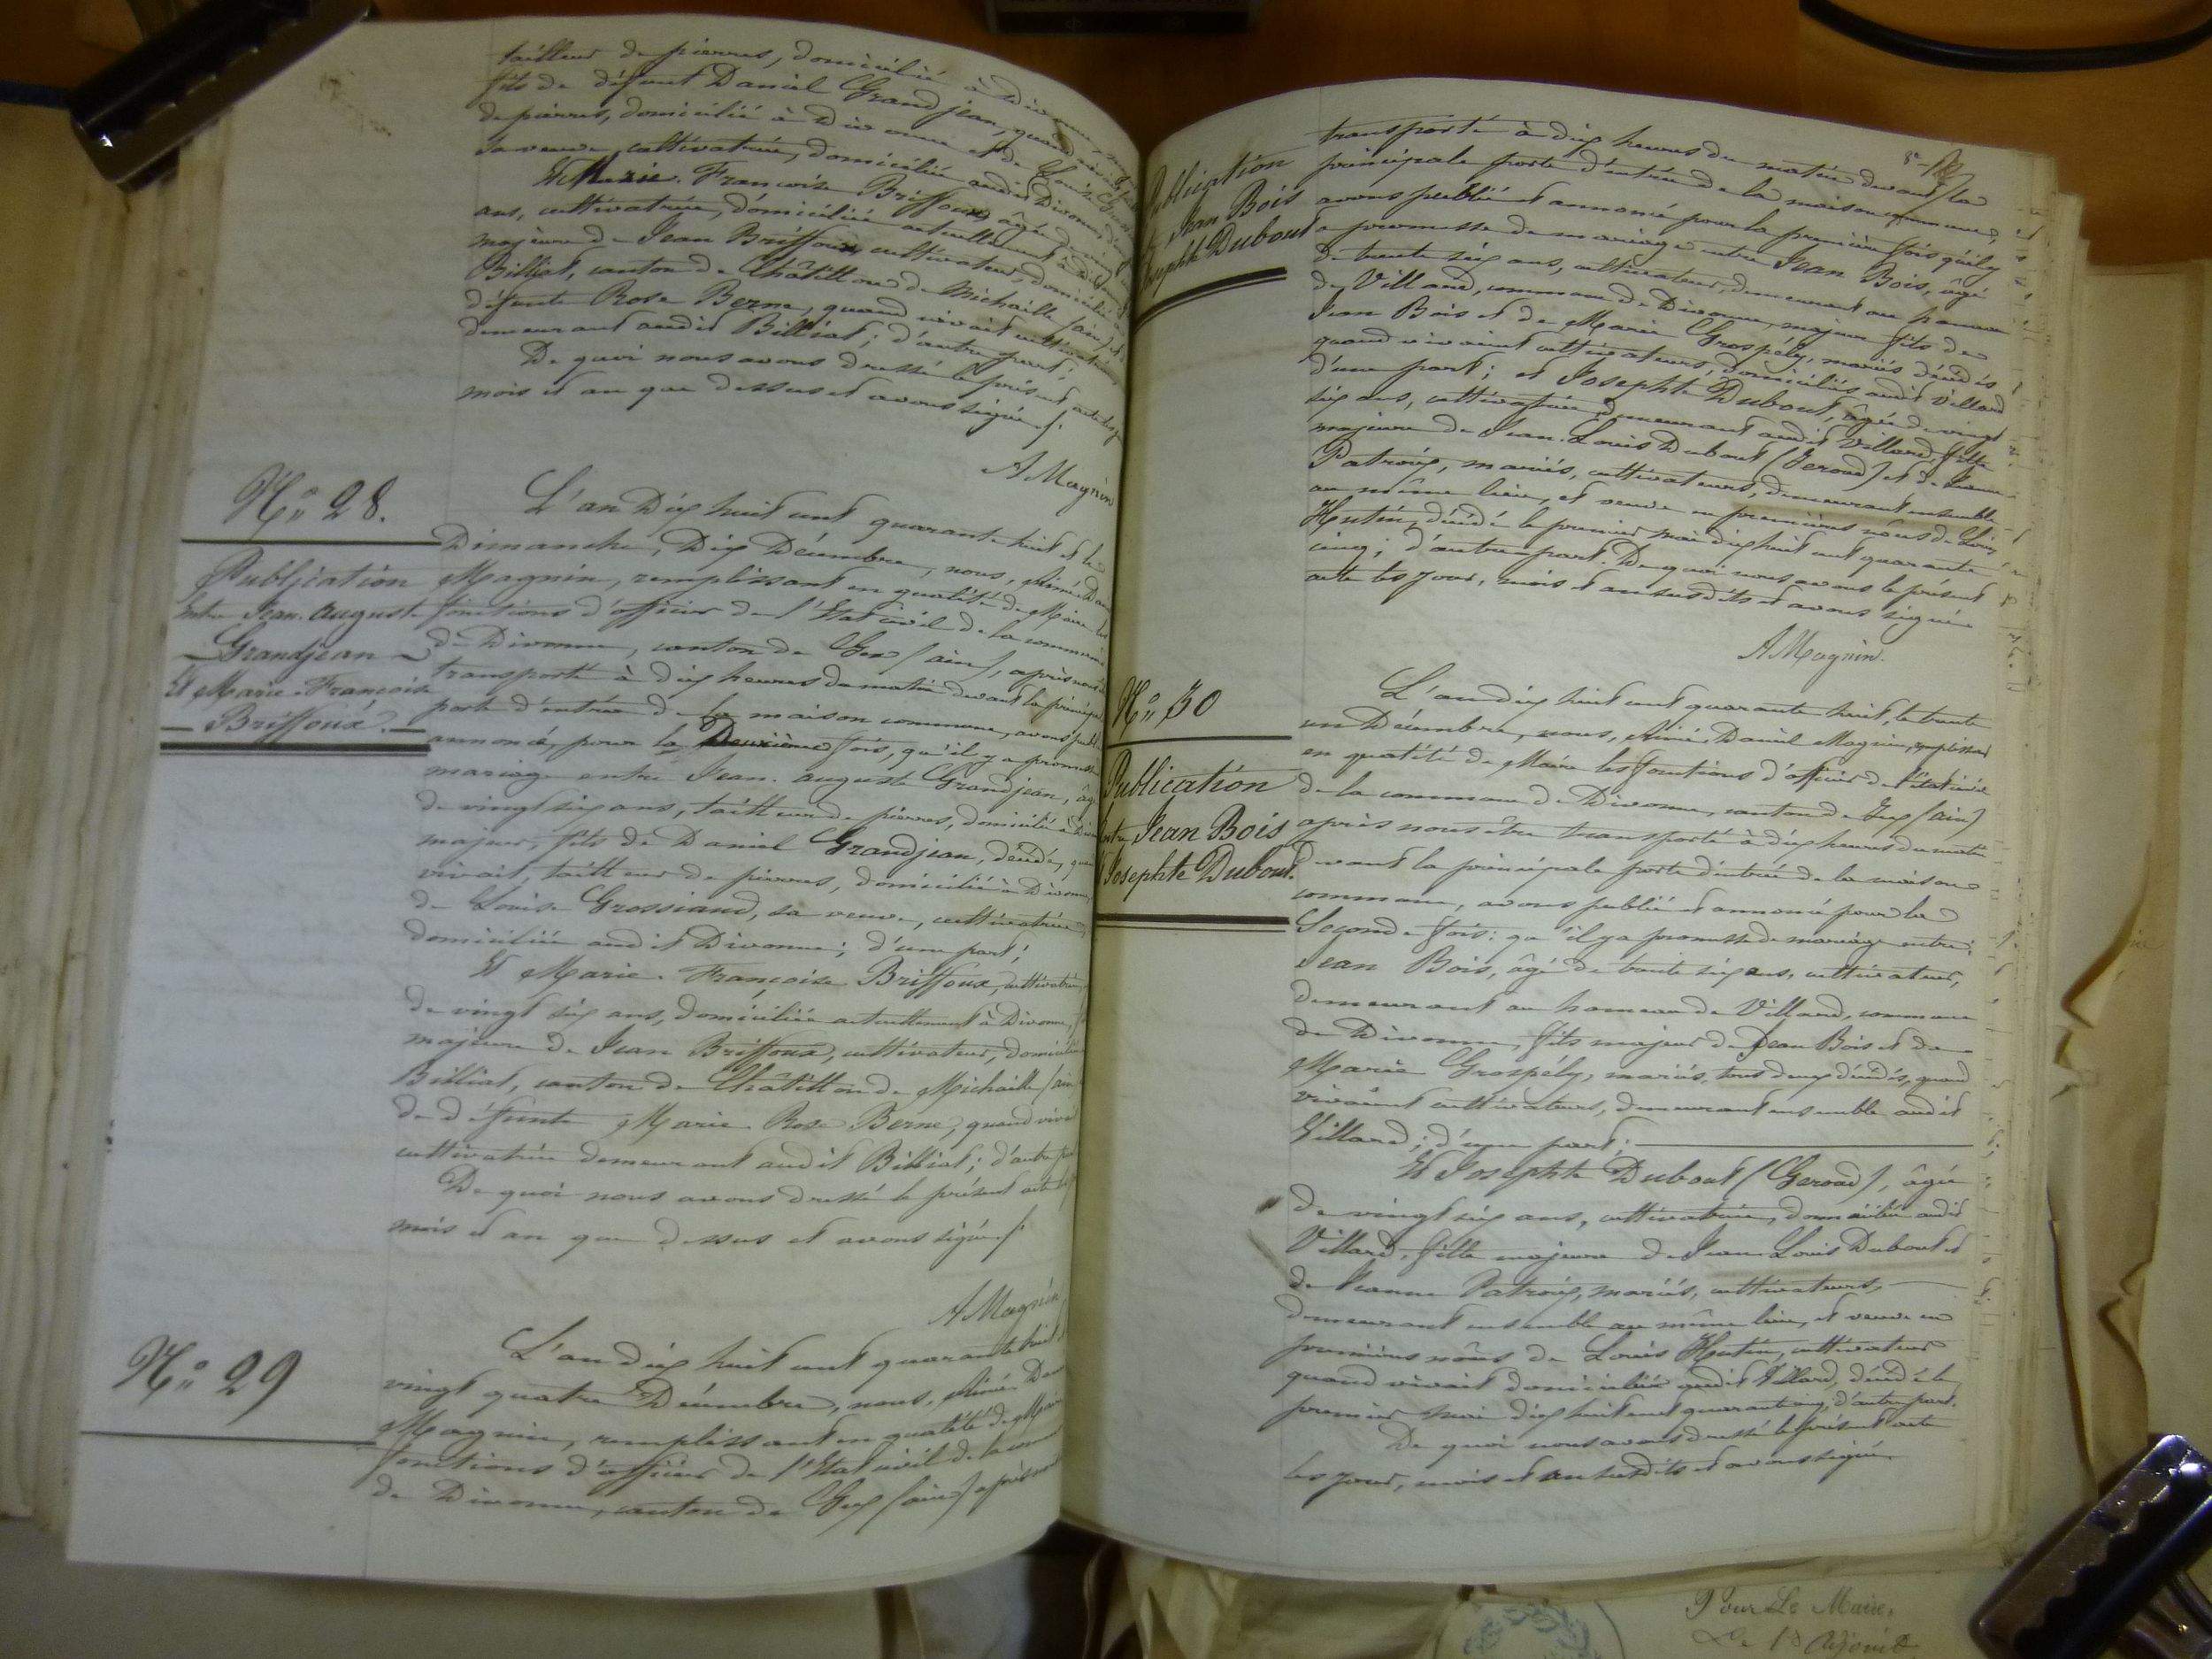 tailleur de pierres, domicilié à Divonne,
fils de défunt Daniel Grandjean, quand vivait
de pierres, domicilié à Divonne et de Louise
sa veuve, cultivatrice, domiciliée audit Divonne,
Et Marie-Françoise Briffoux, âgée de vingt
ans, cultivatrice, domiciliée actuellement à
majeure de Jean Briffoux, cultivateur, domicilié à
Billiat, canton de Châtillon de Michaille (ain) et de
défunte Rose Berne, quand vivait cultivatrice
demeurant audit Billiat; d'autre part;
De quoi nous avons dressé le présent acte les
mois et an que dessus et avons signé ./.
A Magnin
N° 28.
Publication
Entre Jean-auguste
Grandjean
Et Marie-Françoise
Briffoux.
L'an Dix huit cent quarante huit et le
Dimanche, Dix Décembre, nous, Aimé
Magnin, remplissant en qualité de Maire les
fonctions d'officier de l'Etat civil de la commune
de Divonne, canton de Gex (ain), après nous
transporté à dix heures du matin devant la
porte d'entrée de la maison commune, avons
annoncé, pour la Deuxième fois, qu'il y a promesse
mariage entre Jean-auguste Grandjean,
de vingt six ans, tailleur de pierres, domicilié à
majeur, fils de Daniel Grandjean, décédé,
vivait, tailleur de pierres, domicilié à Divonne,
de Louise Grossiand, sa veuve, cultivatrice,
domiciliée audit Divonne; d'une part;
Et Marie-Françoise Briffoux, cultivatrice,
de vingt six ans, domiciliée actuellement à Divonne,
majeure de Jean Briffoux, cultivateur, domicilié
Billiat, canton de Châtillon de Michaille (ain)
de défunte Marie Rose Berne, quand
cultivatrice demeurant audit Billiat; d'autre
De quoi nous avons dressé le présent acte
mois et an que dessus et avons signé ./.
A Magnin
N° 29
L'an dix huit cent quarante huit
vingt quatre Décembre, nous, Aimé
Magnin, remplissant en qualité de
fonctions d'officier de l'Etat civil de la
de Divonne, canton de Gex (ain) après
Publication
Jean Bois
Josephte Dubout
transporté à dix heures du matin devant la
principale porte d'entrée de la maison commune,
avons publié et annoncé pour la première fois qu'il y
a promesse de mariage entre Jean Bois, âgé
de trente six ans, cultivateur, demeurant au hameau
de Villard, commune de Divonne, majeur fils de
Jean Bois et de Marie Grospély, mariés décédés
quand vivaient cultivateurs, domiciliés audit Villard
d'une part; et Josephte Dubout, âgée de vingt
six ans, cultivatrice, demeurant audit Villard, fille
majeure de Jean-Louis Dubout (Geroud) et de Jeanne
Patroix, mariés, cultivateurs, demeurant ensemble
au même lieu, et veuve en premières nôces de Louis
Hutin, décédé le premier mai dix huit cent quarante
cinq; d'autre part. De quoi nous avons le présent
acte les jour, mois et an susdits et avons signé
A Magnin.
N° 30
Publication
entre Jean Bois
Et Josephte Dubout.
L'an dix huit cent quarante huit, le trente
un Décembre, nous, Aimé Daniel Magnin, remplissant
en qualité de Maire les fonctions d'officier de l'état civil
de la commune de Divonne, canton de Gex (ain)
après nous être transporté à dix heures du matin
devant la principale porte d'entrée de la maison
commune, avons publié et annoncé pour la
Seconde fois: qu'il y a promesse de mariage entre:
Jean Bois, âgé de trente six ans, cultivateur,
demeurant au hameau de Villard, commune
de Divonne, fils majeur de Jean Bois et de
Marie Grospély, mariés, tous deux décédés, quand
vivaient cultivateurs, demeurant ensemble audit
Villard; d'une part;
Et Josephte Dubout (Geroud), âgée
de vingt six ans, cultivatrice, domiciliée audit
Villard, fille majeure de Jean Louis Dubout et
de Jeanne Patroix, mariés, cultivateurs,
demeurant ensemble au même lieu, et veuve en
premières nôces de Louis Hutin, cultivateur
quand vivait domicilié audit Villard, décédé le
premier mai dix huit cent quarante cinq, d'autre part.
De quoi nous avons dressé le présent acte
les jour, mois et an susdits et avons signé
Pour Le Maire,